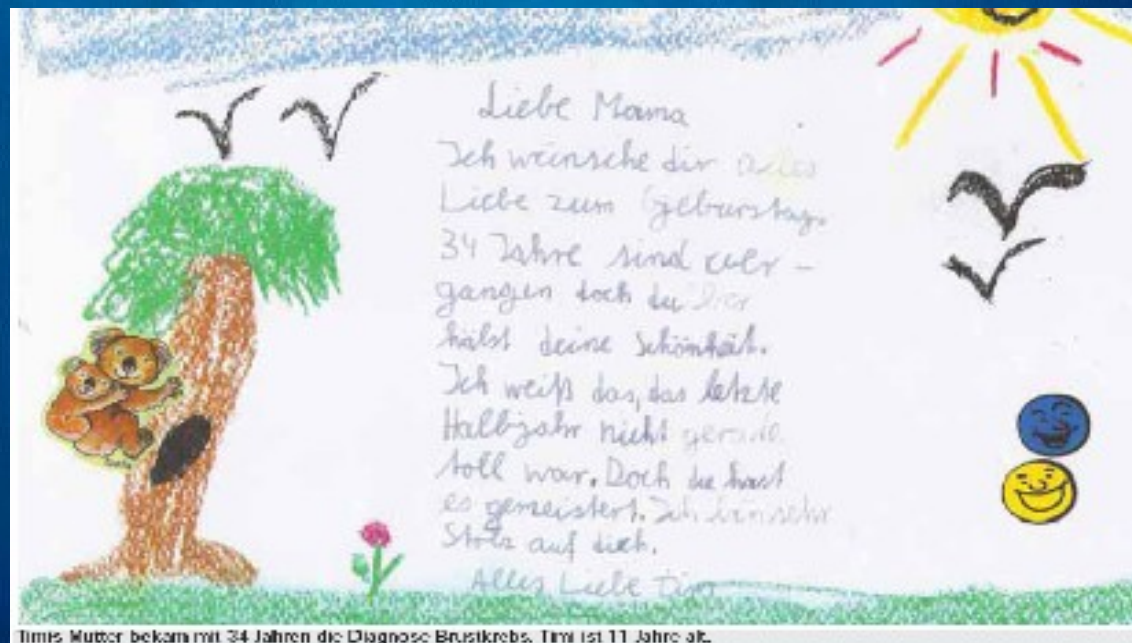 Liebe Mama
Ich wünsche dir alles
Liebe zum Geburstag.
34 Jahre sind ver-
gangen doch du
hälst deine Schönheit.
Ich weiß das, das letzte
Halbjahr nicht gerade
toll war. Doch du hast
es gemeistert. Ich bin sehr
Stolz auf dich.
Alles Liebe Tim
Timis Mutter bekam mit 34 Jahren die Diagnose Brustkrebs. Timi ist 11 Jahre alt.